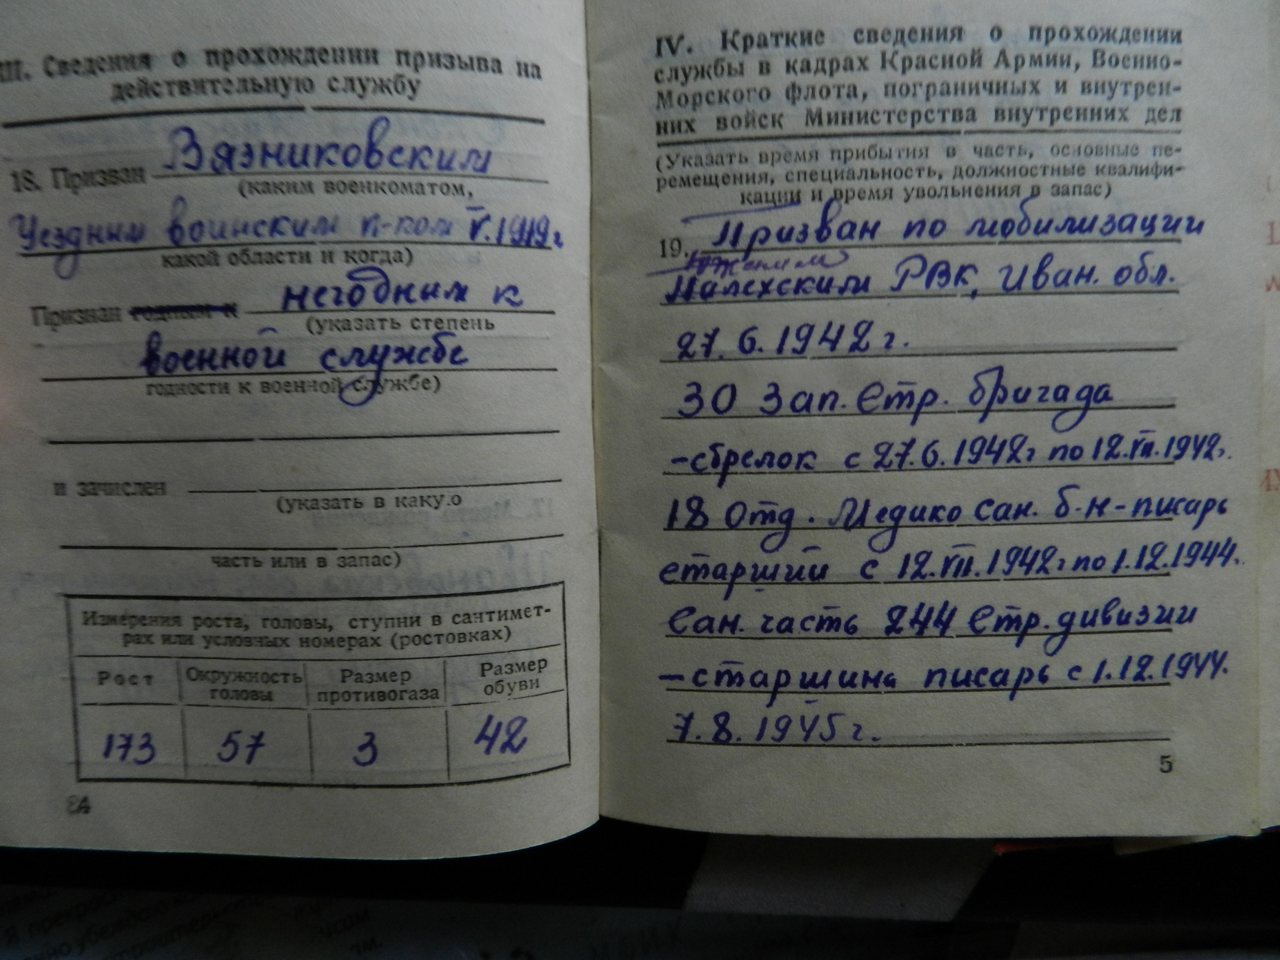 III. Сведения о прохождении призыва на
действительную службу
18. Призван Вязниковским
(каким военкоматом,
Уездным воинским к-ком V.1919г
какой области и когда)
Признан годным к негодным к
(указать степень
военной службе
годности к военной службе)
и зачислен
(указать в каку.о
часть или в запас)
Измерения роста, головы, ступни в сантимет-
рах или условных номерах (ростовках)
Рост Окружность головы Размер противогаза Размер обуви
173 57 3 42
4
IV. Краткие сведения о прохождении
службы в кадрах Красной Армии, Военно-
Морского флота, пограничных и внутрен-
них войск Министерства внутренних дел
(Указать время прибытия в часть, основные пе-
ремещения, специальность, должностные квалифи-
кации и время увольнения в запас)
19. Призван по мобилизации
РВК, Иван. обл.
27.6.1942г.
30 Зап. Стр. бригада
-стрелок с 27.6.1942г по 12.VII.1942г.
18 Отд. Медико Сан. б-н-писарь
старший с 12.VII.1942г по 1.12.1944.
Сан. часть 244 Стр. дивизии
-старшина писарь с 1.12.1944.
7.8.1945г.
5